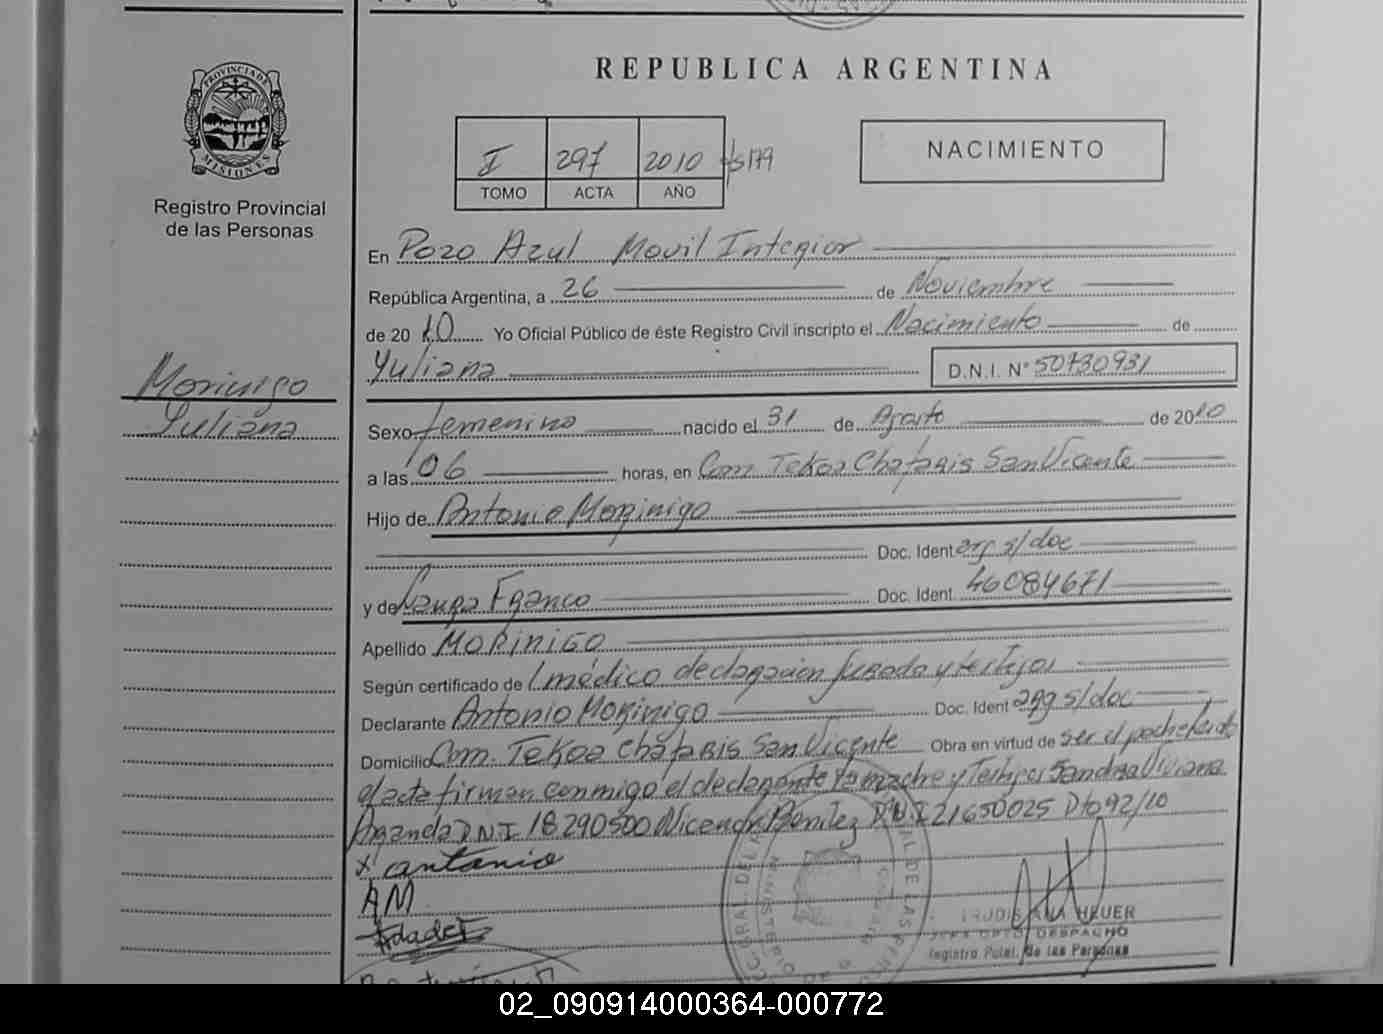 REPUBLICA ARGENTINA
PROVINCIA DE
MISIONES
Registro Provincial
de las Personas
I 297 2010 fs 179
TOMO ACTA AÑO
NACIMIENTO
En Pozo Azul Movil Interior
República Argentina, a 26 de Noviembre
de 2010 Yo Oficial Público de éste Registro Civil inscripto el Nacimiento de
Yuliana D.N.I. N° 50730931
Morinigo
Yuliana
Sexo femenino nacido el 31 de Agosto de 2010
a las 06 horas, en Com. Tekoa Chafariz San Vicente
Hijo de Antonio Morinigo
Doc. Ident arg s/doc
y de Laura Franco Doc. Ident. 46084671
Apellido MORINIGO
Según certificado de / médico declaracion Jurada y testigos
Declarante Antonio Morinigo Doc. Ident arg s/doc
Domicilio Com. Tekoa Chafariz San Vicente Obra en virtud de ser el padre leido
el acta firman conmigo el declarante la madre y Testigos Sandra Viviana
Aranda D.N.I 18290500 Nicanor Benitez D.N.I 21650025 Dto 92/10
x antonio
AM
TRUDIS ANA HEUER
JEFE DPTO. DESPACHO
Registro Pcial. de las Personas
02_090914000364-000772